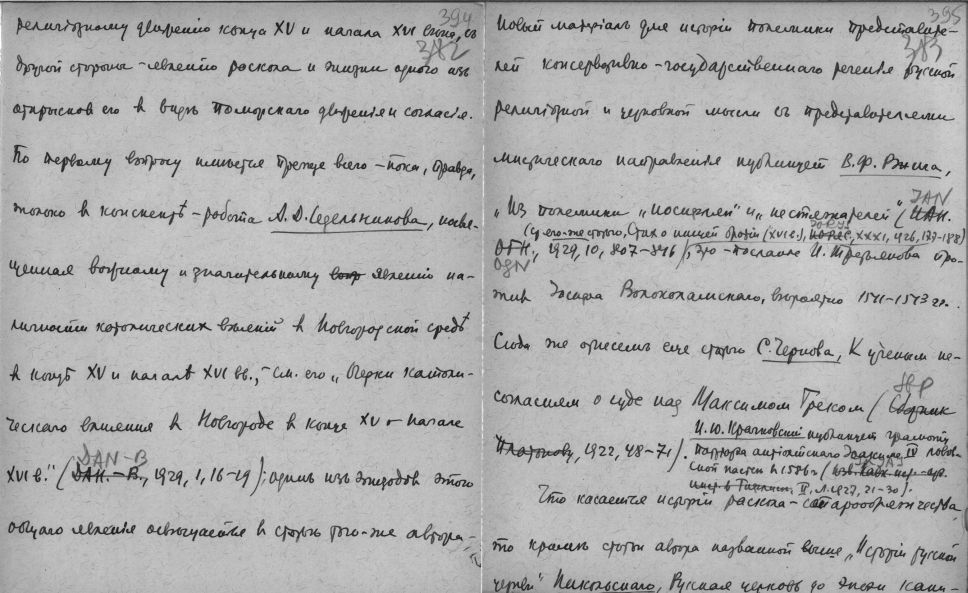 394
382
религіозному движенію конца XV и начала XVI вѣка, съ
другой стороны – явленію раскола и жизни одного изъ
отпрысков его в видѣ поморскаго движенія и согласія.
По первому вопросу имѣется прежде всего – пока, правда,
только в конспектѣ – работа А. Д. Седельникова, посвя-
щенная важному и значительному явленію на-
личности католических вліяній в Новгородской средѣ
в концѣ XV и началѣ XVI вв., – см. его „Очерки католи-
ческаго вліянія в Новгороде в конце XV – начале
DAN-B
XVI в.“ (ДАН.–В., 1929, 1, 16–19); одинъ изъ эпизодовъ этого
общаго явленія освѣщается в статьѣ того-же автора, –
395
383
Новый матеріалъ для исторіи полемики представите-
лей консервативно-государственнаго теченія русской
религіозной и церковной мысли съ представителями
мистическаго направленія публикует В. Ф. Ржига,
„Из полемики „иосифлян“ и „нестяжателей“ (ИАН.
IAN
(ср. его-же статью, Стих о нищей братіи (XVI в.), ИОРЯС, XXXI, 926, 177–188)
ОГН., 1929, 10, 807–816), это – посланіе И. Третьякова про-
OGN
тив Иосифа Волоколамскаго, вѣроятно 1511–1513 гг.
Сюда же отнесемъ еще статью С. Чернова, К ученым не-
согласіям о суде над Максимом Греком (Сборник
Платонову, 1922, 48–71).
И. Ю. Крачковский публикует грамоту
патріарха антіохійскаго Іоакима IV
Изв. Кавк. ист.-арх.
инст. в Тифлисе, II, Л. 1927, 21–30).
Что касается исторіи раскола – старообрядчества,
то кромѣ статьи автора названной выше „Исторіи русской
церкви“ Никольскаго, Русская церковь до эпохи капи-